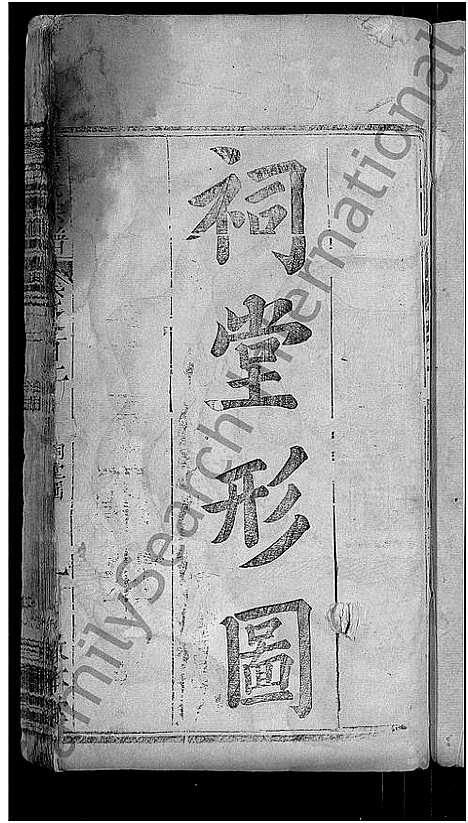 祠堂形圖
FamilySearch International